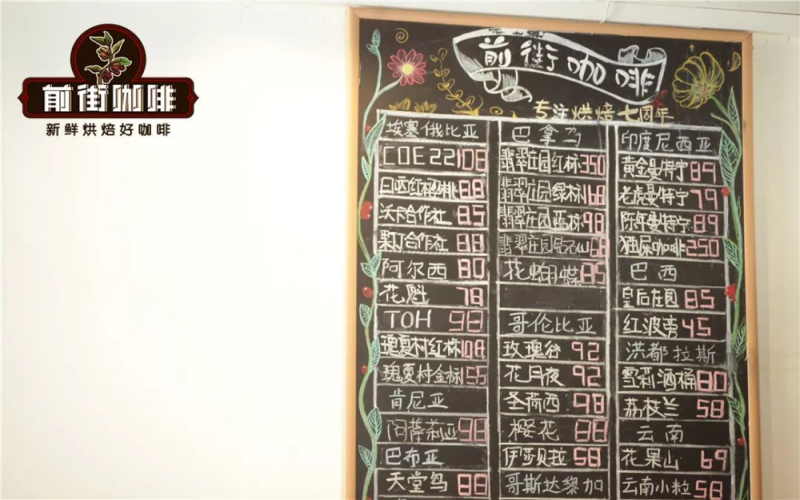 前街咖啡
新鲜烘焙好咖啡
前街咖啡
专注烘焙七周年
埃塞俄比亚
COE22 108
日晒红樱桃 88
沃卡合作社 85
果丁合作社 88
阿尔西 80
花魁 78
TOH 98
瑰夏村红标 108
瑰夏村金标 155
肯尼亚
阿蒂莉亚 98
巴布亚
天堂鸟 88
巴拿马
翡翠庄园红标 350
翡翠庄园绿标 168
翡翠庄园蓝标 98
翡翠庄园钻石山 68
花蝴蝶 89
哥伦比亚
玫瑰谷 92
花月夜 92
圣荷西 98
樱花 88
伊莎贝拉 58
哥斯达黎加
印度尼西亚
黄金曼特宁 89
老虎曼特宁 79
陈年曼特宁 89
猫屎咖啡 250
巴西
皇后庄园 85
红波旁 45
洪都拉斯
雪莉酒桶 80
荔枝兰 58
云南
花果山 69
云南小粒 58